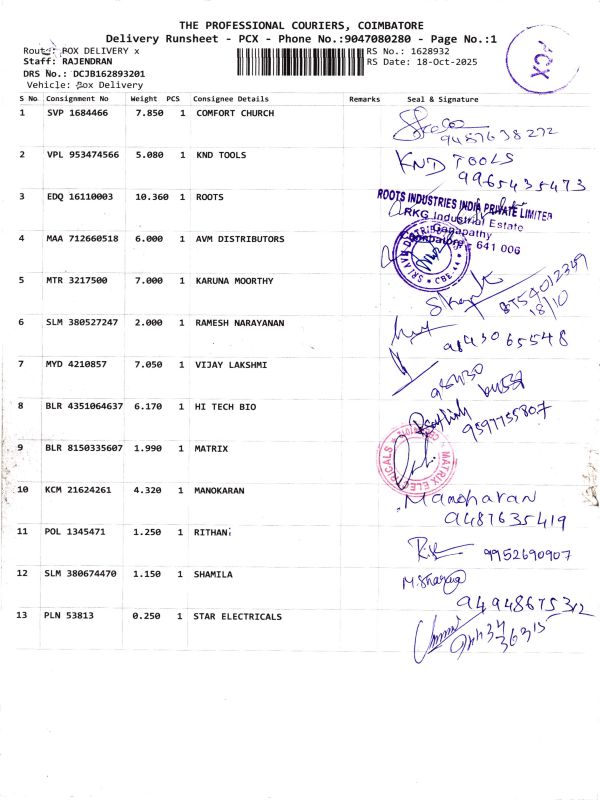 THE PROFESSIONAL COURIERS, COIMBATORE
Delivery Runsheet - PCX - Phone No.:9047080280 - Page No.:1
Route: BOX DELIVERY x
RS No.: 1628932
Staff: RAJENDRAN
RS Date: 18-Oct-2025
DRS No.: DCJB162893201
Vehicle: Box Delivery
PCX
S No Consignment No Weight PCS Consignee Details Remarks Seal & Signature
1 SVP 1684466 7.850 1 COMFORT CHURCH
9487638272
2 VPL 953474566 5.080 1 KND TOOLS
KND TOOLS
9965435473
3 EDQ 16110003 10.360 1 ROOTS
ROOTS INDUSTRIES INDIA PRIVATE LIMITED
RKG Industrial Estate
Ganapathy
Coimbatore - 641 006
4 MAA 712660518 6.000 1 AVM DISTRIBUTORS
SRI AVM DISTRIB
CBE-44
5 MTR 3217500 7.000 1 KARUNA MOORTHY
18/10
6 SLM 380527247 2.000 1 RAMESH NARAYANAN
9843065548
7 MYD 4210857 7.050 1 VIJAY LAKSHMI
98430
8 BLR 4351064637 6.170 1 HI TECH BIO
9597755807
9 BLR 8150335607 1.990 1 MATRIX
MATRIX ELECTRICALS
10 KCM 21624261 4.320 1 MANOKARAN
Manoharan
9487635419
11 POL 1345471 1.250 1 RITHANI
9952690907
12 SLM 380674470 1.150 1 SHAMILA
94948675312
13 PLN 53813 0.250 1 STAR ELECTRICALS